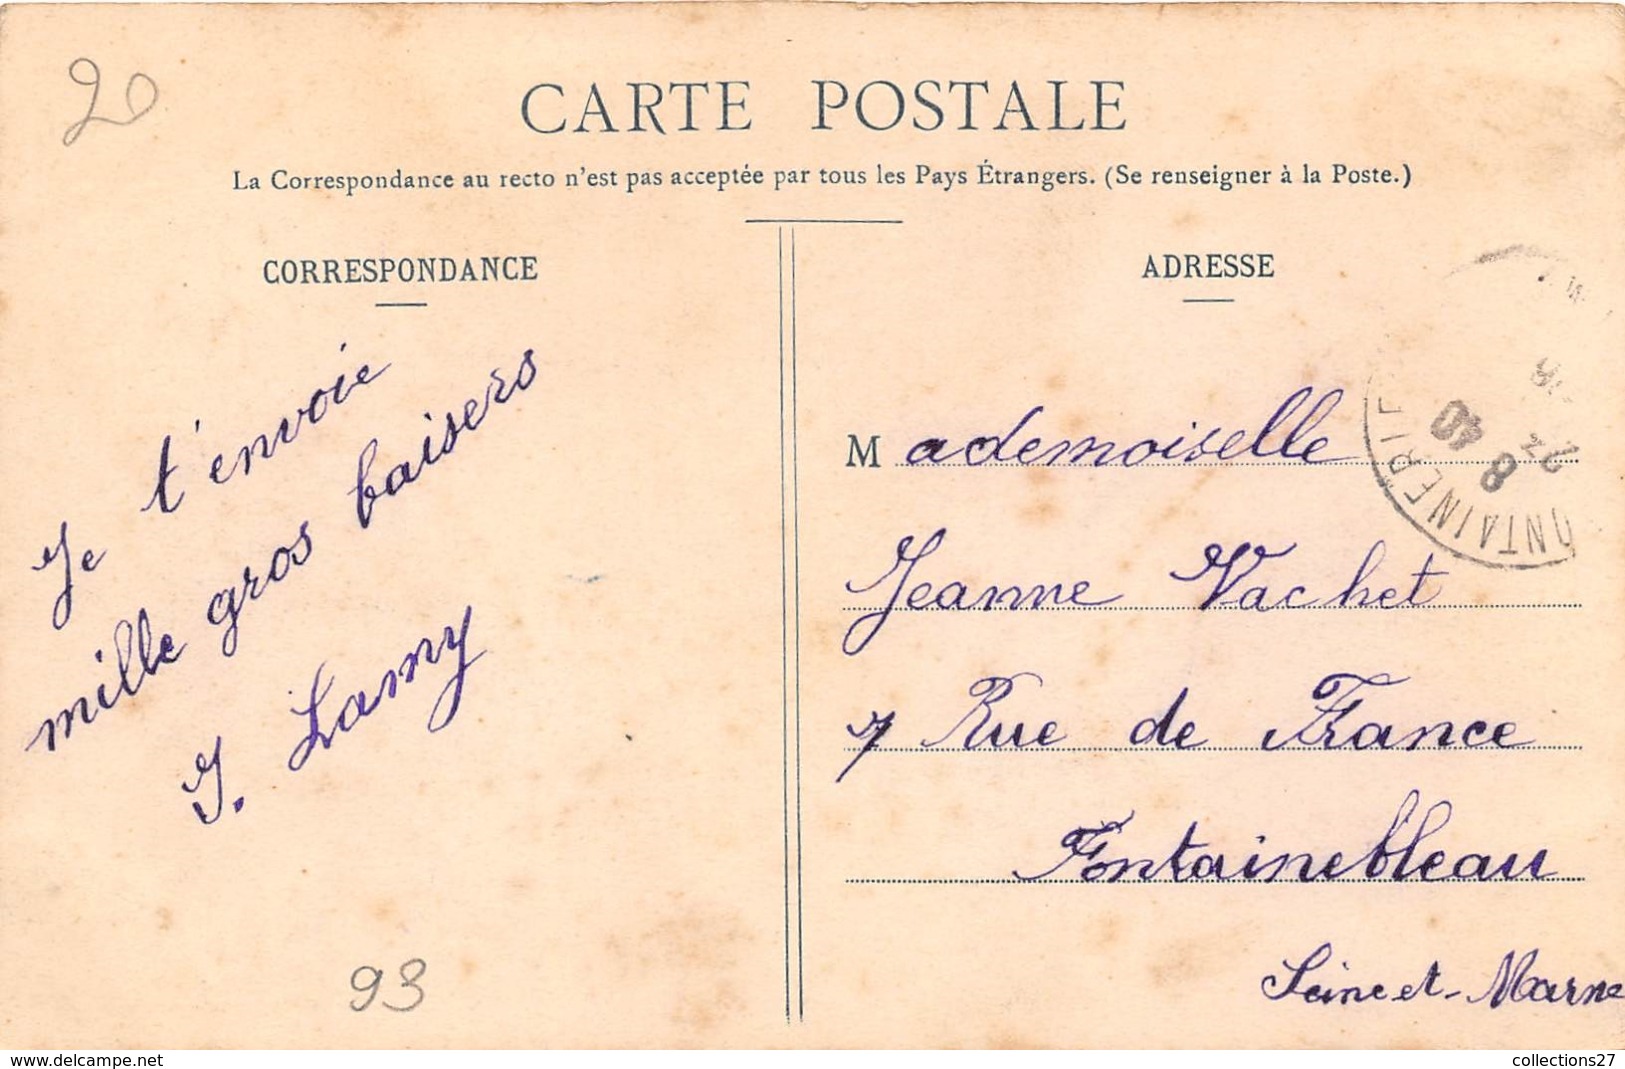 20
CARTE POSTALE
La Correspondance au recto n'est pas acceptée par tous les Pays Étrangers. (Se renseigner à la Poste.)
CORRESPONDANCE
Je t'envoie
mille gros baisers
J. Lamy
93
ADRESSE
8 40
Mademoiselle
Jeanne Vachet
7 Rue de France
Fontainebleau
Seine et-Marne
www.delcampe.net
collections27